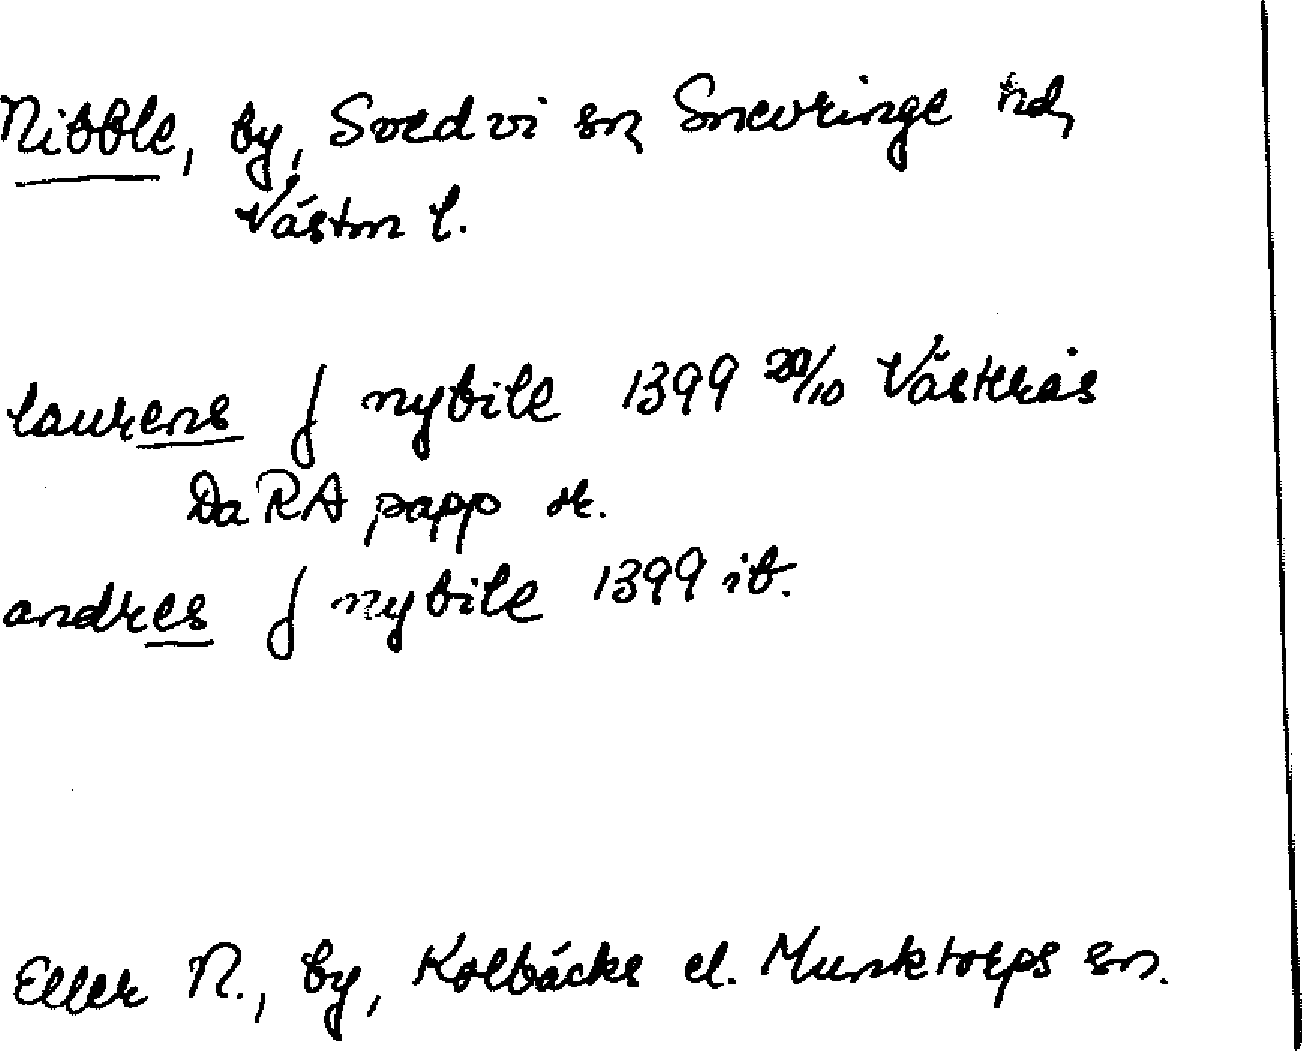 Nibble, by, Svedvi sn, Snevringe hd,
Västm l.
laurens J nybile 1399 20/10 Västerås
Da RA papp or.
andres J nybile 1399 ib.
Eller N., by, Kolbäcks el. Munktorps sn.